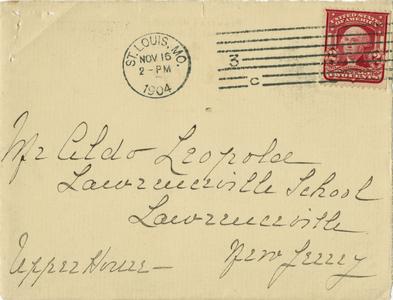 ST. LOUIS, MO.
NOV 15
2-PM
1904
3
C
UNITED STATES
OF AMERICA
TWO CENTS
Mr Aldo Leopold
Lawrenceville School
Lawrenceville
New Jersey
Upper House—